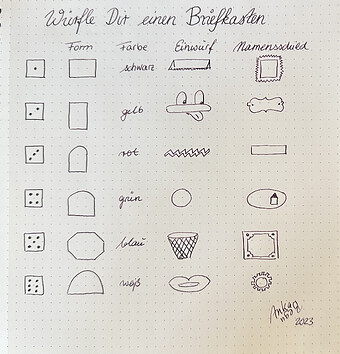 Würfle Dir einen Briefkasten
Form Farbe Einwurf Namensschied
schwarz
gelb
rot
grün
blau
weiß
2023